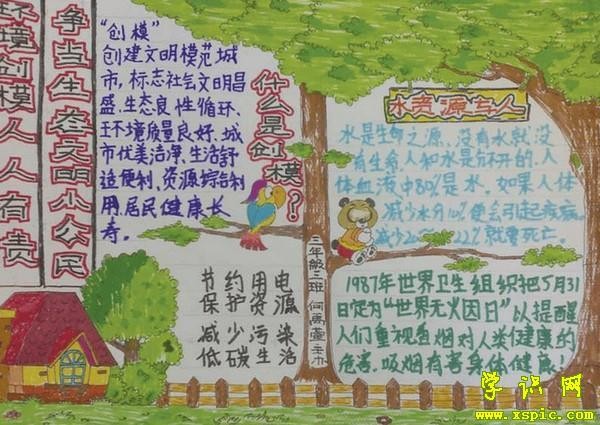 环境创模人人有责
争当生态文明小公民
什么是创模？
“创模”
创建文明模范城
市，标志社会文明昌
盛、生态良性循环、
环境质量良好、城
市优美洁净、生活舒
适便利、资源综合利
用、居民健康长
寿。
节约用电
保护资源
减少污染
低碳生活
三年级二班
水资源与人
水是生命之源，没有水就没
有生命，人和水是分不开的，人
体血液中80%是水，如果人体
减少水分10%便会引起疾病，
减少20%～22%就要死亡。
1987年世界卫生组织把5月31
日定为“世界无火因日”以提醒
人们重视香烟对人类健康的
危害，吸烟有害身体健康！
学识网
www.xspic.com